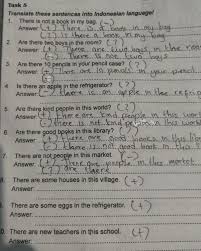 Task 5
Translate these sentences into Indonesian language!
1. There is not a book in my bag. (-)
Answer: (+) There is a book in my bag
(?) Is there a book in my bag
2. Are there two boys in the room? (?)
Answer: (+) There are two boys in the room
(-) There is not two boys
3. Are there 10 pencils in your pencil case? (?)
Answer: (+) There are 10 pencils in your pencil
4. Is there an apple in the refrigerator? (?)
Answer: (+) there is an apple in the refrige
5. Are there kind people in this world? (?)
Answer: (+) there are kind people in this wor
(-) there is not kind people in this wor
6. Are there good books in this library? (?)
Answer: (+) there are good books in this lib
(-) there is not good book in this
7. There are not people in this market. (-)
Answer: (+) there are people in this market
(?) are there
8. There are some houses in this village. (+)
Answer:
9. There are some eggs in the refrigerator. (+)
Answer:
0. There are new teachers in this school. (+)
Answer: